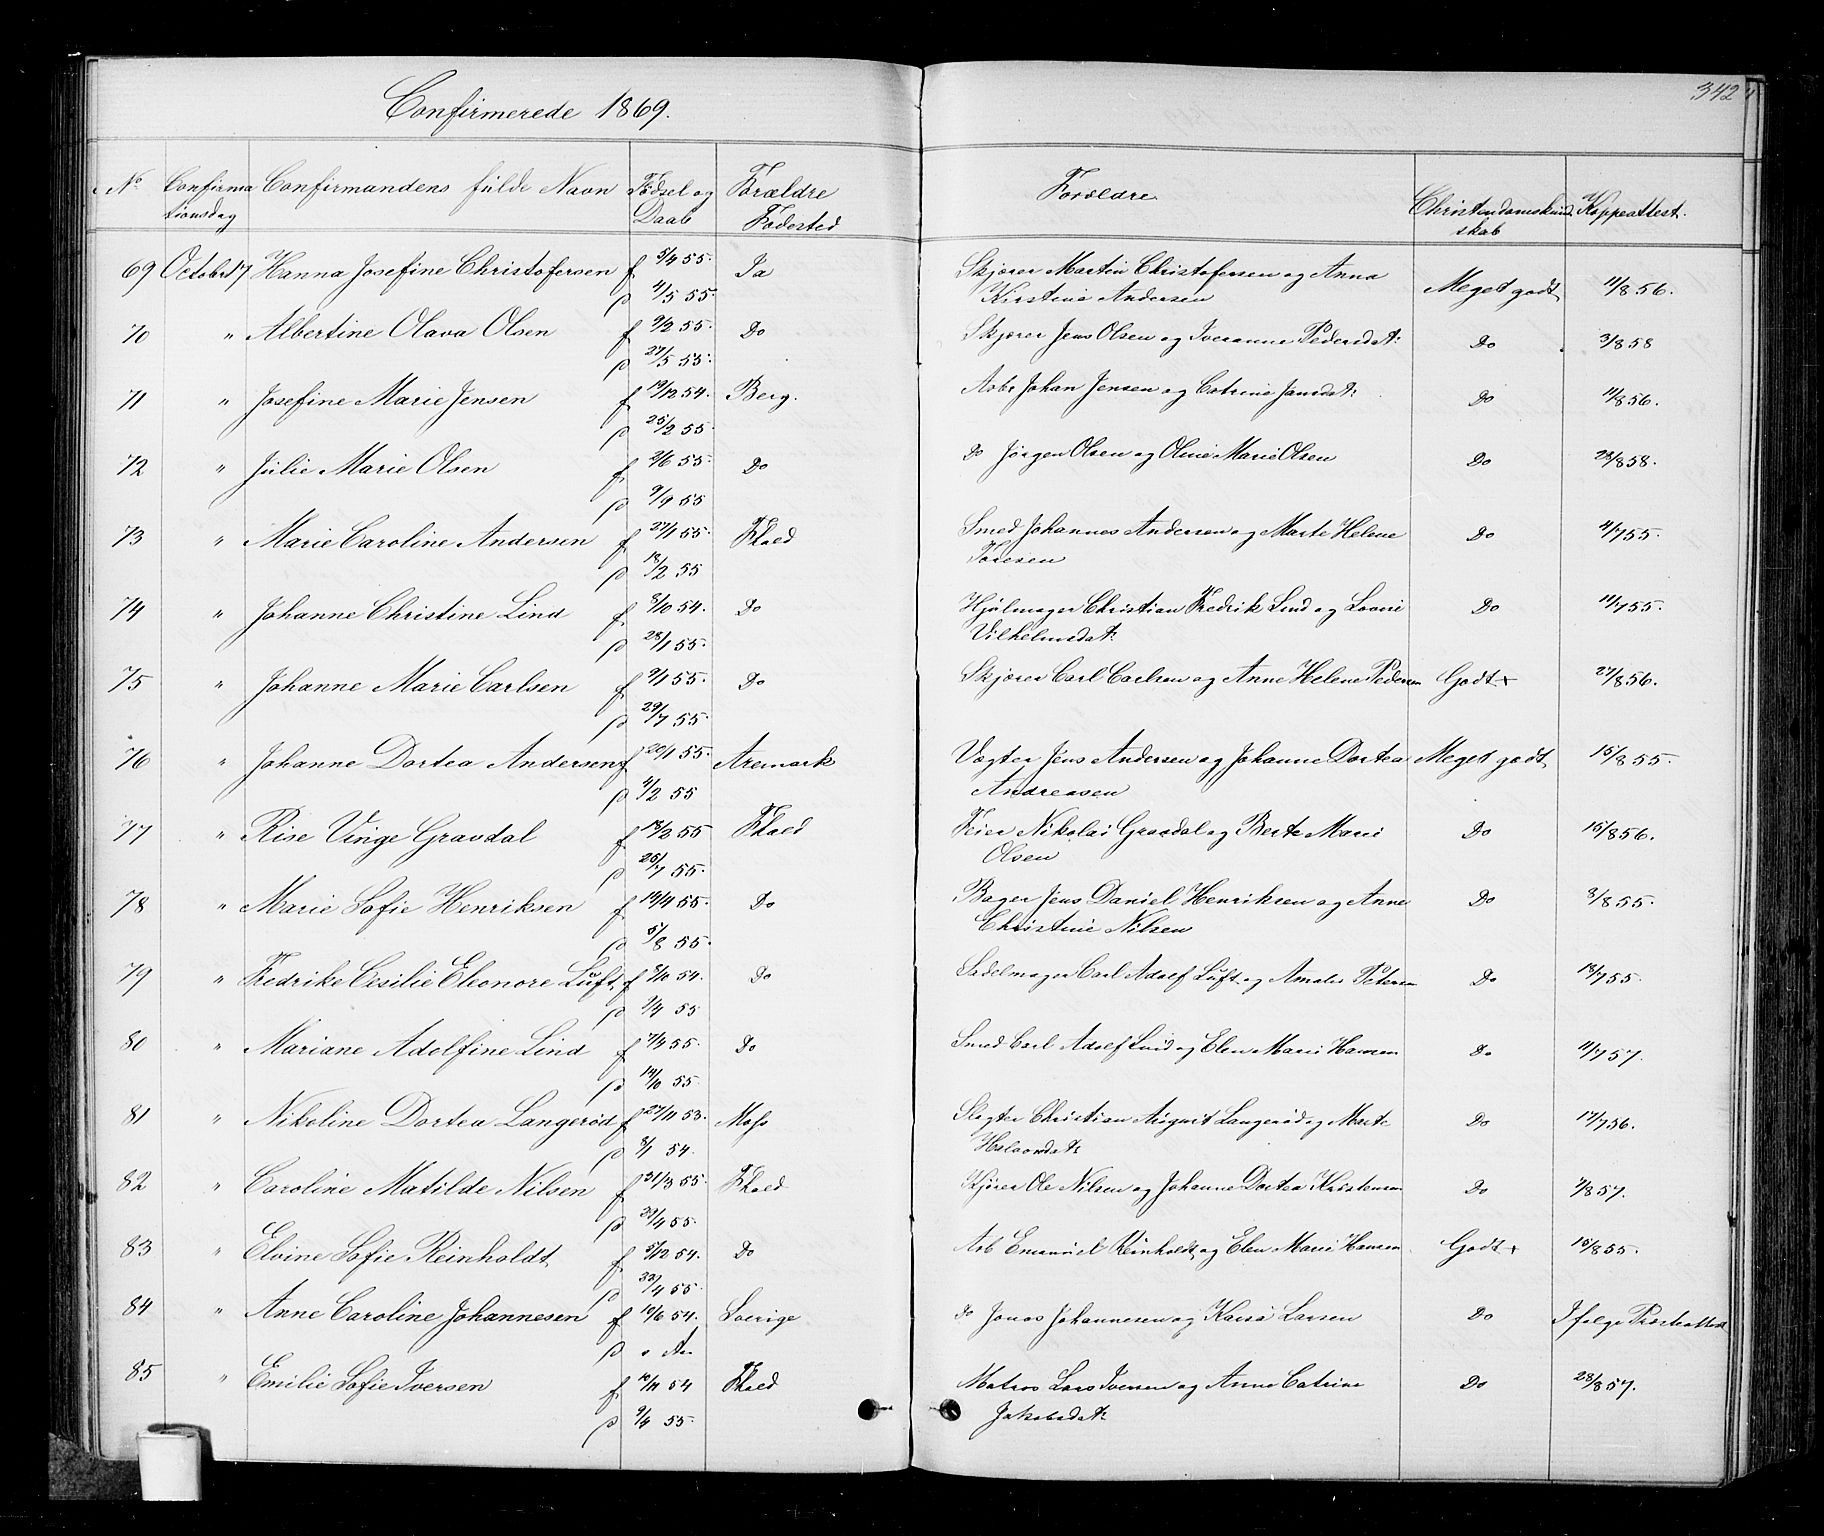 Confirmerede 1869.
342
No Confirma Confirmandens fulde Navn Fødsel og Forældre Forældre. Christendomskund Koppeattest.
tionsdag Daab Fødested skab
69 October 17 Hanna Josefine Christofersen f 5/4 55. Da Skjærer Martin Christofersen og Anna Meget godt 11/8 56.
d 4/5 55. Kirstine Andersen
70 " Albertine Olava Olsen f 9/2 55. Do Skjærer Jens Olsen og Iveranne Pedersdtr. Do 3/8 58
d 27/5 55.
71 " Josefine Marie Jensen f 19/12 54. Berg. Arbr Johan Jensen og Catrine Jansdtr. Do 11/8 56.
d 25/2 55.
72 " Julie Marie Olsen f 2/6 55. Do Do Jörgen Olsen og Oline Marie Olsen Do 28/8 58.
d 9/9 55
73 " Marie Caroline Andersen f 27/1 55. Fhald Smed Johannes Andersen og Marte Helene Do 4/7 55.
d 18/2 55 Toresen
74 " Johanne Christine Lind f 8/10 54. Do Hjulmager Christian Fredrik Lind og Lovni Do 11/7 55.
d 28/1 55. Vilhelmsdtr.
75 " Johanne Marie Carlsen f 9/1 55. Do Skjærer Carl Carlsen og Anne Helene Pedersen Godt + 27/8 56.
d 29/7 55.
76 " Johanne Dortea Andersen f 20/1 55. Aremark Vægter Jens Andersen og Johanne Dortea Meget godt 15/8 55.
d 4/2 55 Andreasen
77 " Rise Vinge Gravdal f 18/2 55 Fhald Feier Nikolai Gravdal og Berte Marie Do 15/8 56.
d 25/7 55. Olsen
78 " Marie Sofie Henriksen f 19/4 55. Do Bager Jens Daniel Henriksen og Anne Do 3/8 55.
d 5/8 55. Christine Nilsen
79 " Fredrike Cesilie Eleonore Luft f 8/11 54. Do Sadelmager Carl Adolf Luft og Amalie Petersen Do 18/7 55.
d 1/4 55
80 " Mariane Adolfine Lind f 7/4 55. Do Smed Carl Adolf Lind og Elen Marie Hansen Do 11/7 57.
d 14/10 55.
81 " Nikoline Dortea Langerød f 27/11 53. Moss Slagter Christian August Langerød og Marte Do 17/7 56.
d 8/1 54. Halvordtr.
82 " Caroline Matilde Nilsen f 31/3 55. Fhald Skjærer Ole Nilsen og Johanne Dortea Kristensen Do 7/8 57.
d 29/4 55.
83 " Elvine Sofie Reinholdt f 5/12 54. Do Arb Emanuel Reinholdt og Elen Marie Hansen Godt + 15/8 55.
d 22/4 55.
84 " Anne Caroline Johannesen f 10/6 54. Sverige Do Jonas Johannesen og Kaisa Larsen Do Ifølge Presteattest
d
85 " Emilie Sofie Iversen f 10/11 54 Fhald Matros Lars Iversen og Anne Catrine Do 28/8 57.
d 9/4 55. Jakobsdtr.